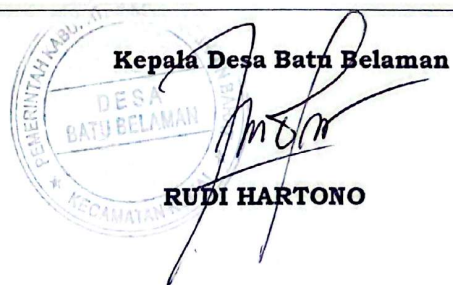 Kepala Desa Batu Belaman
PEMERINTAH KABU
DESA
BATU BELAMAN
KECAMATAN
RUDI HARTONO